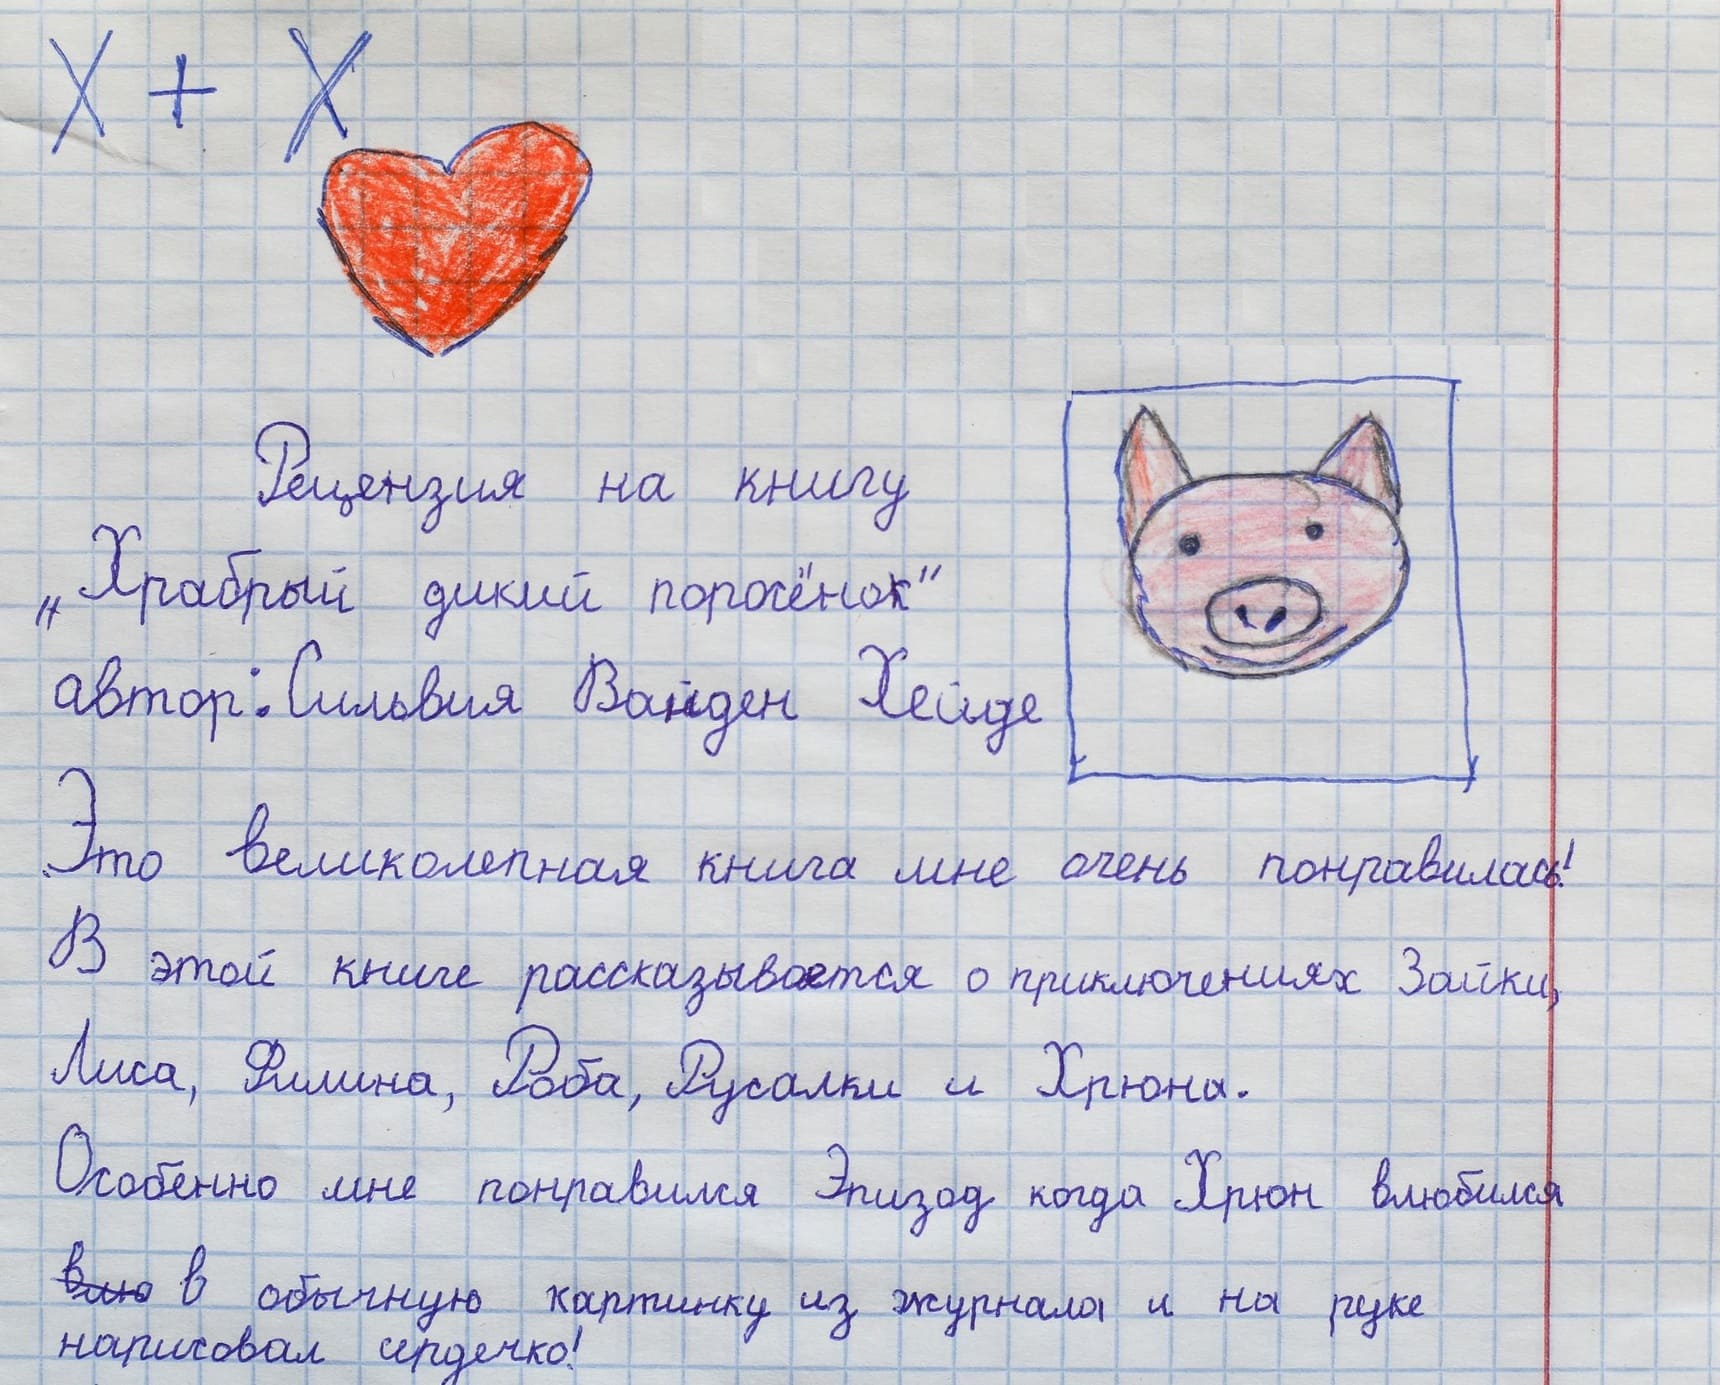 Х + Х
Рецензия на книгу
„Храбрый дикий поросёнок"
автор: Сильвия Ванден Хейде
Это великолепная книга мне очень понравилась!
В этой книге рассказывается о приключениях Зайки,
Лиса, Филина, Роба, Русалки и Хрюна.
Особенно мне понравился Эпизод когда Хрюн влюбился
влю в обычную картинку из журнала и на руке
нарисовал сердечко!